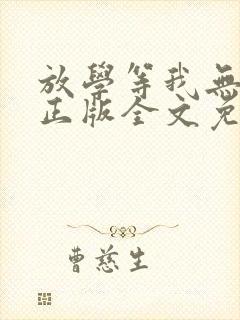 放學等我無
正版全文免
曹慈生